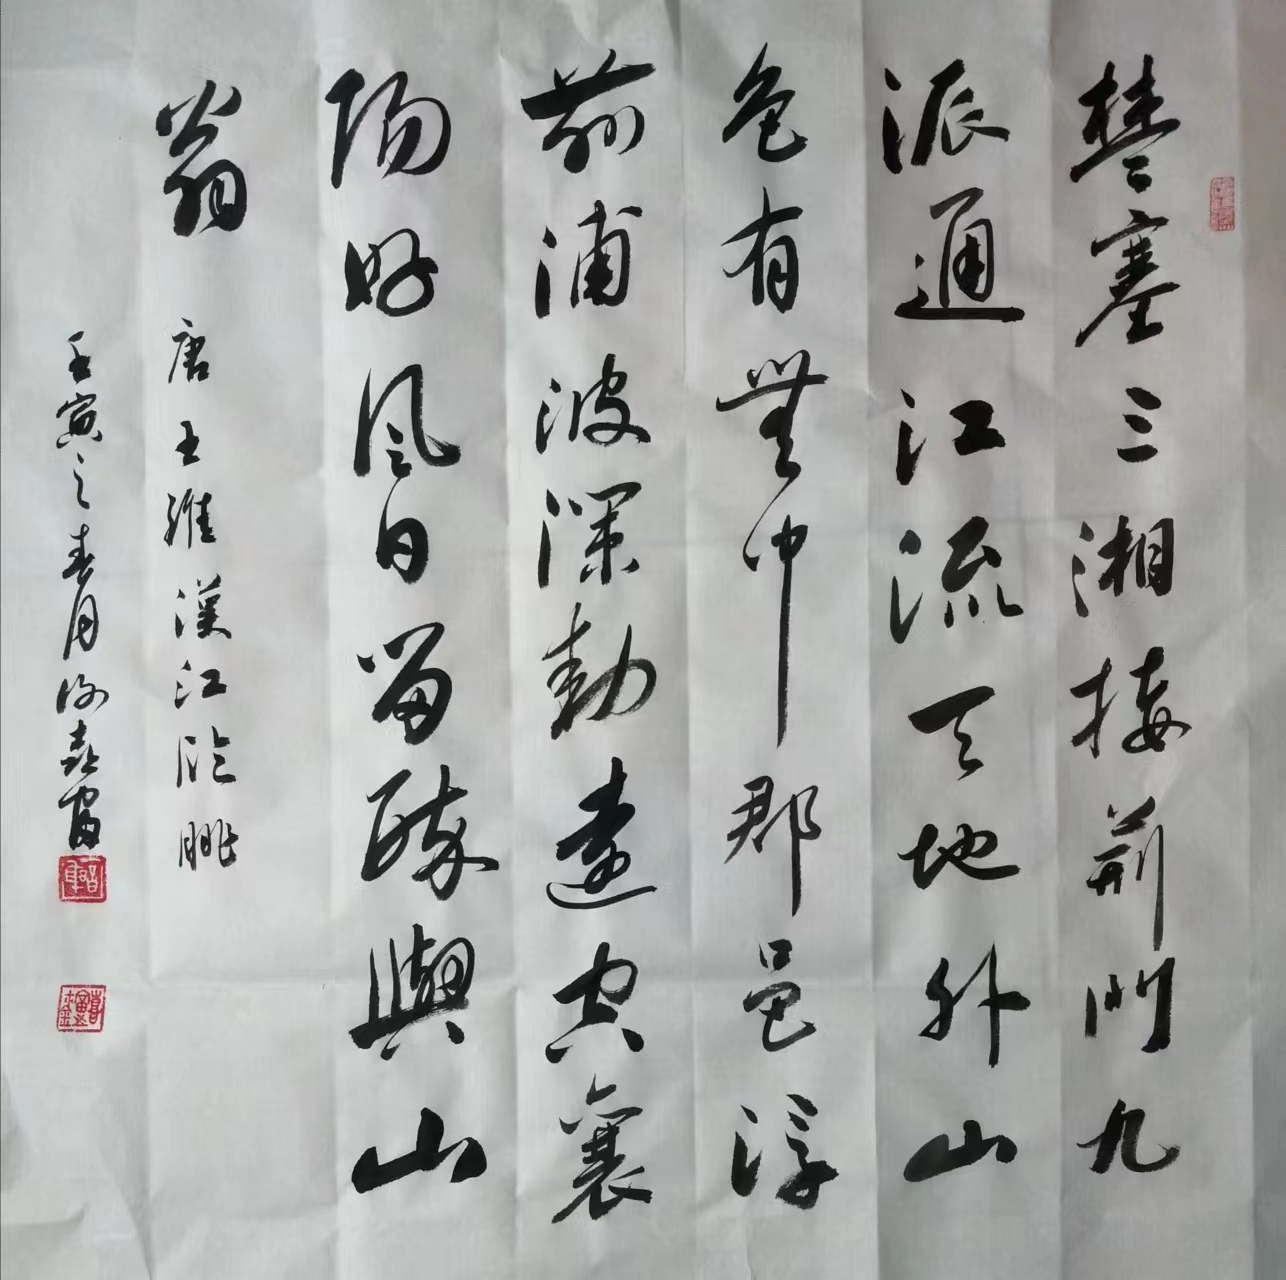 楚塞三湘接荆門九
派通江流天地外山
色有無中郡邑浮
前浦波瀾動遠空襄
陽好風日留醉與山
翁 唐王維漢江臨眺
壬寅之春月